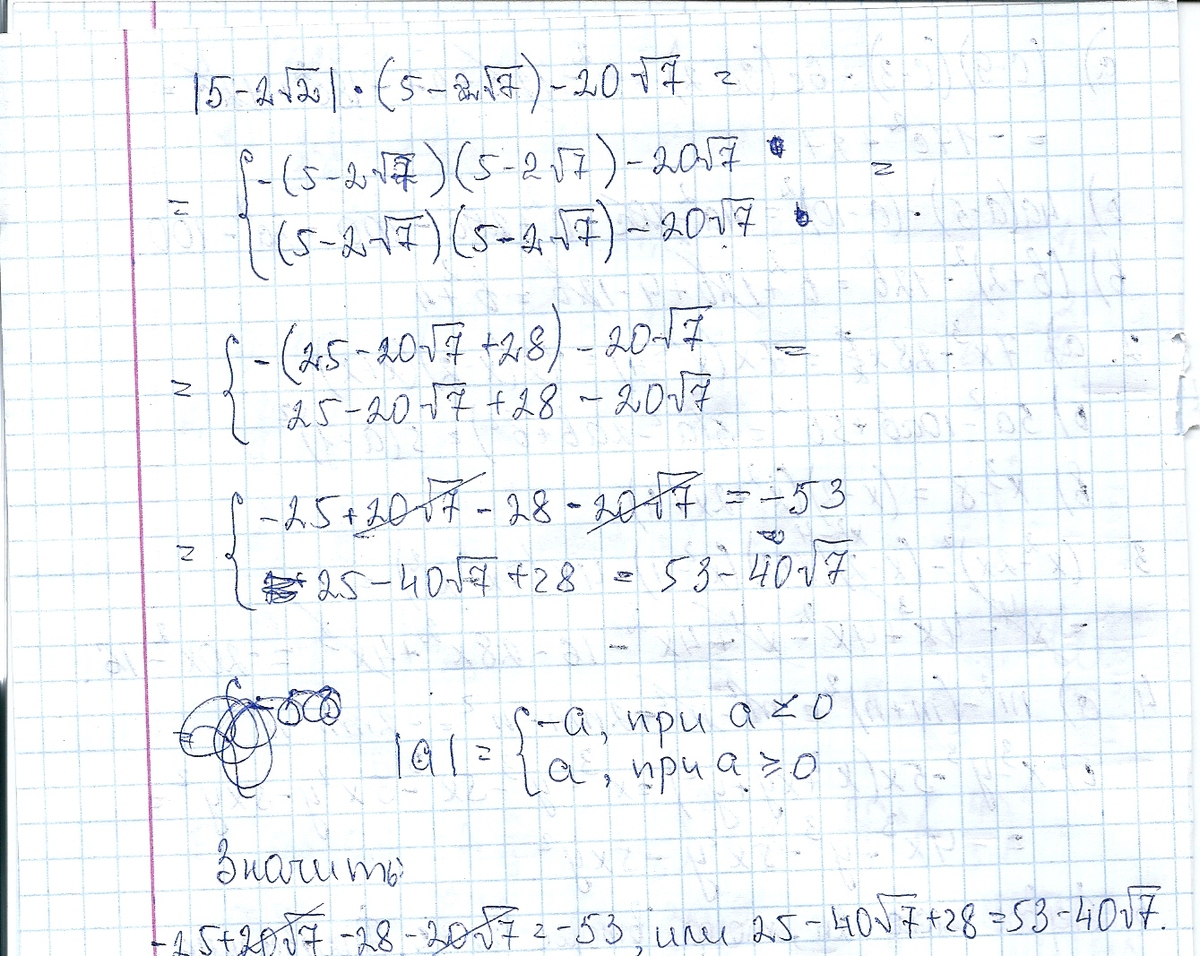 |5-2√2|•(5-2√7)-20√7 =
= { -(5-2√7)(5-2√7)-20√7 =
(5-2√7)(5-2√7)-20√7
= { -(25-20√7+28)-20√7 =
25-20√7+28-20√7
= { -25+20√7-28-20√7 = -53
25-40√7+28 = 53-40√7
|a| = { -a, при a < 0
a, при a ≥ 0
Значить:
-25+20√7-28-20√7=-53, или 25-40√7+28=53-40√7.